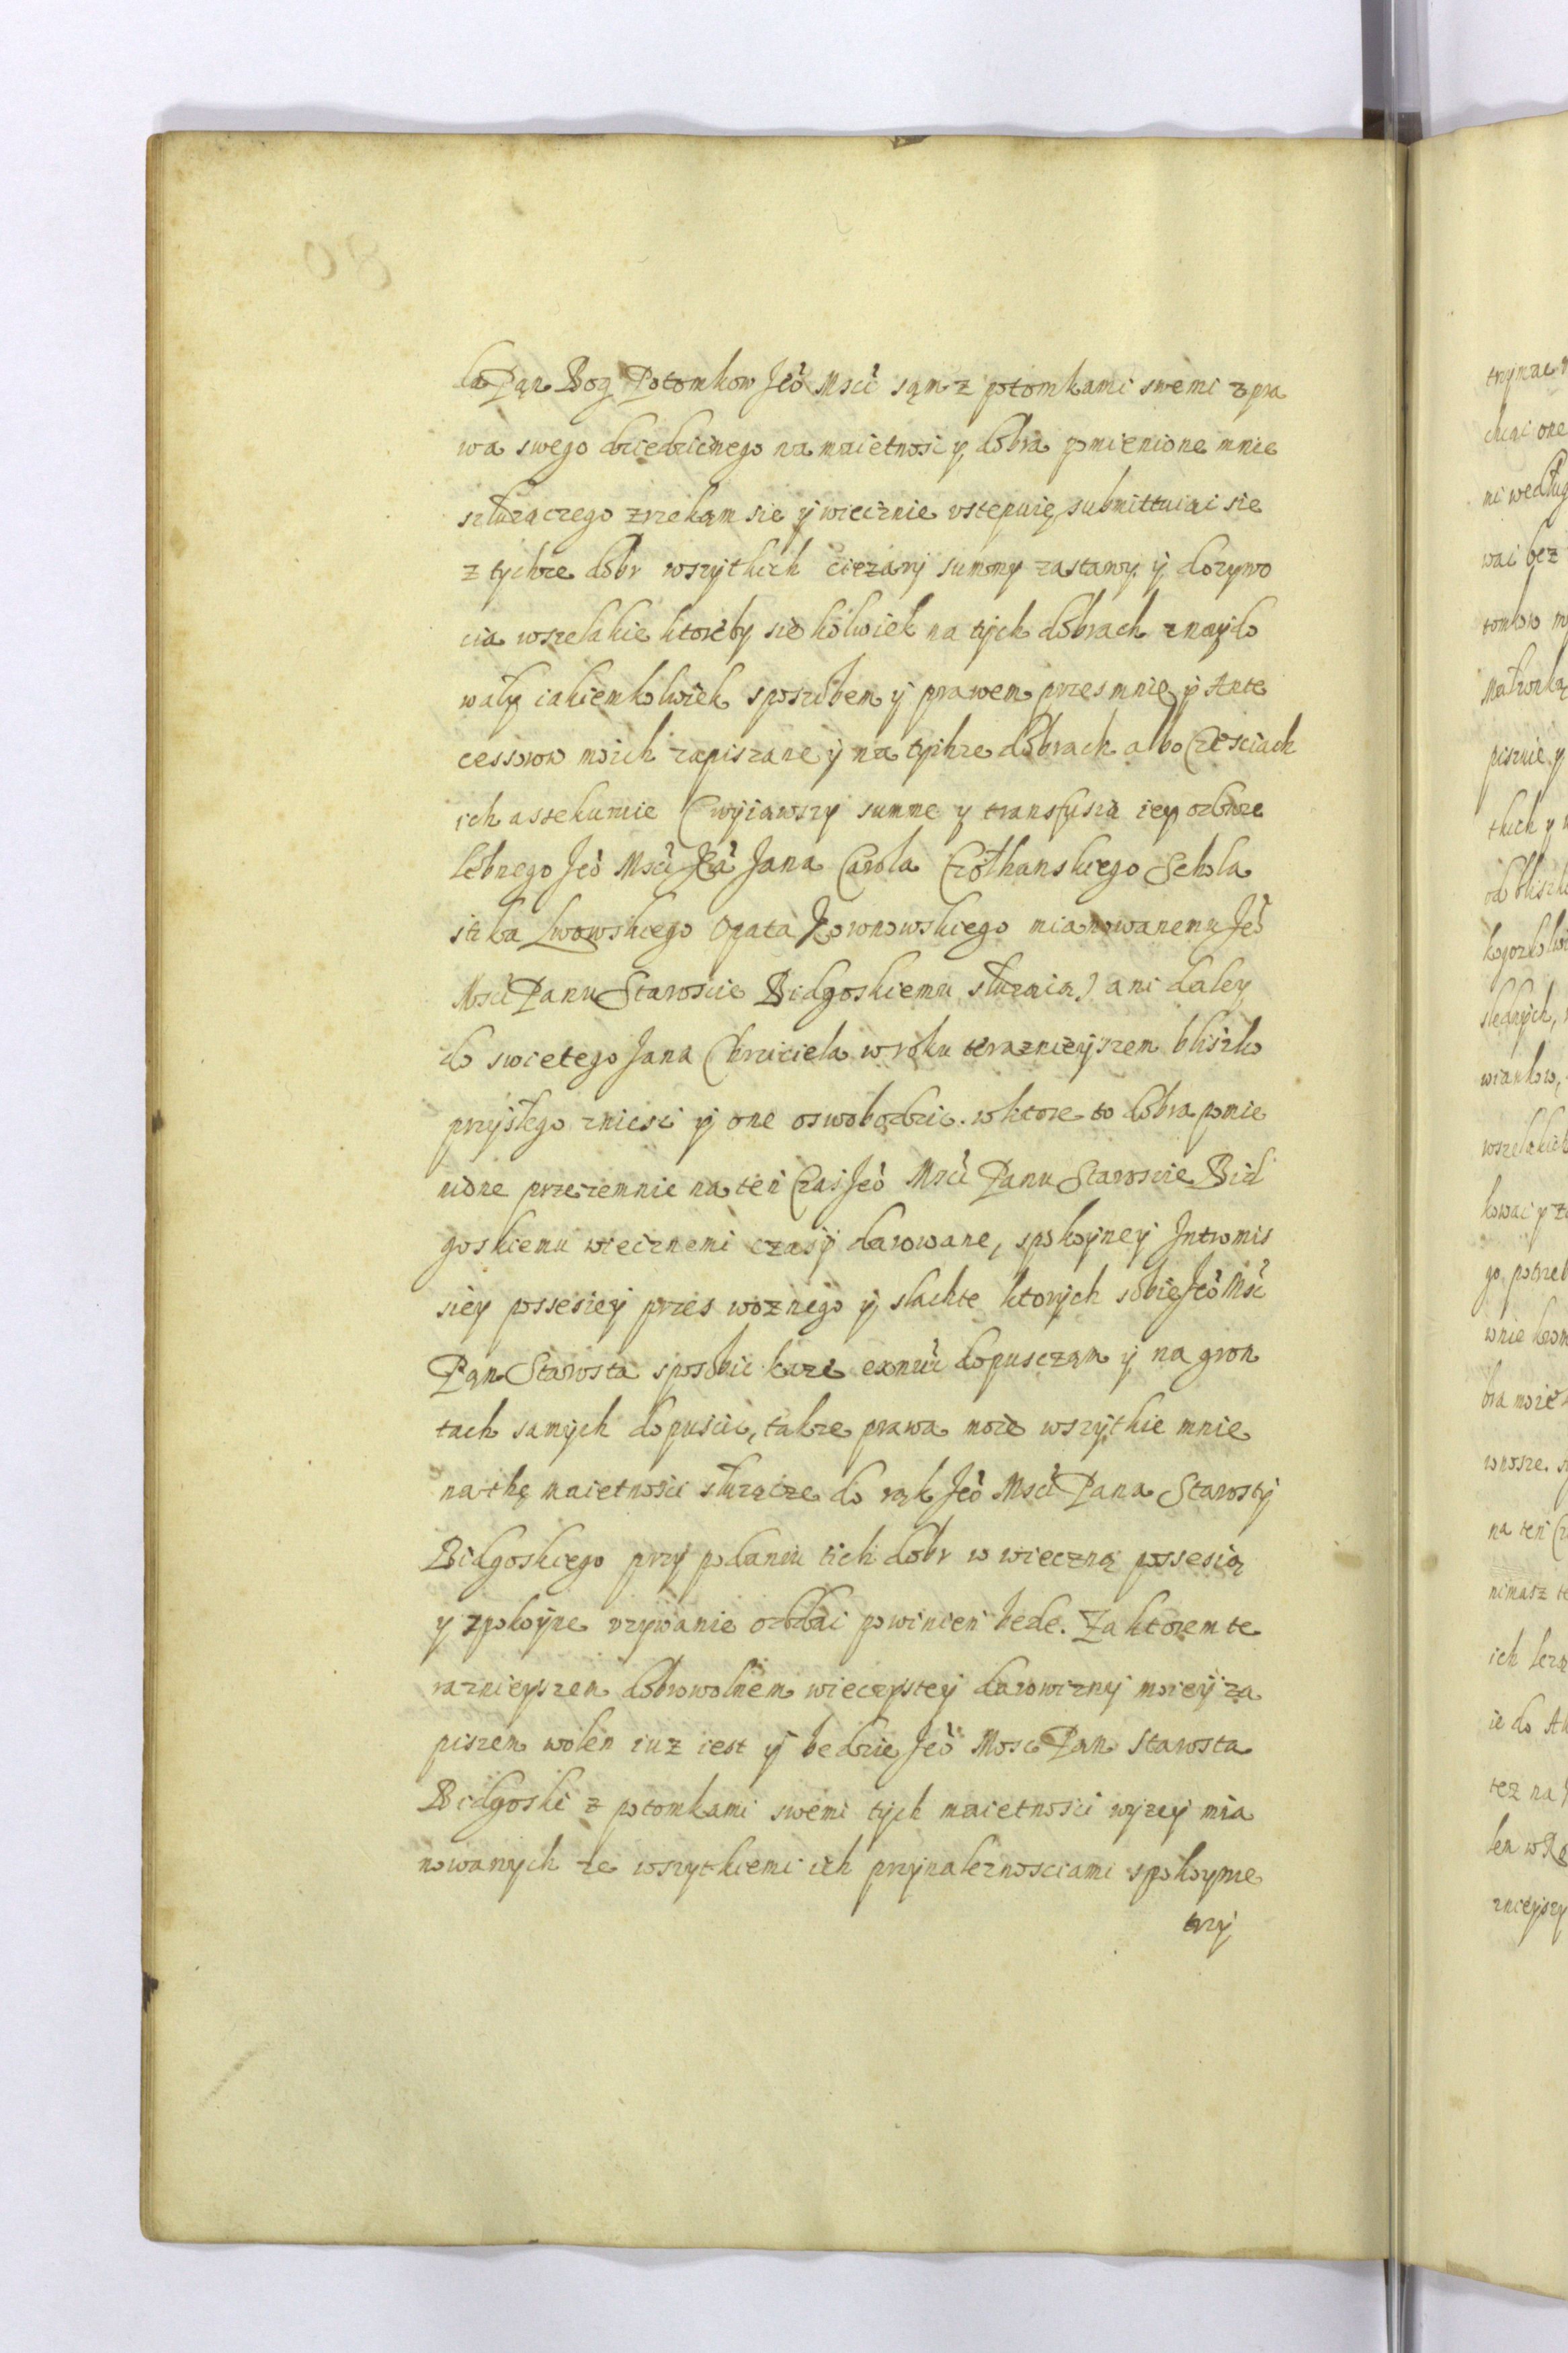 la Pąn Bog Potomkow Jeo Mści sąm z potomkami swemi z pra
wa swego dziedzicnego na maietnosc y dobra pomienione mnie
służączego zrzekąm sie ÿ wiecznie vstepuię submittuiąi sie
z tychze dobr wszytkich ciezarÿ summÿ zastawy ÿ dozywo
cia wszelakie ktoreby sie kolwiek na tÿch dobrach znaydo
wały iakiemkolwiek sposobem ÿ prawem przes mnie ÿ Ante
cessorow moich zapiszane ÿ na tychze dobrach albo Czesciach
ich assekuruie (wÿiawszy summe y transfusia iey od
lebnego Jeo Mści Xa Jana Carola Czolhanskiego Schola
stika Lwowskiego Opata mianowanemu Jeo
Mści Panu Staroscie Bidgoskiemu służąią) ani daleÿ
do swietego Jana Chrziciela w roku teraznieÿszem bliszko
przÿslego zniesc ÿ one oswobodzic. w ktore to dobra pomie
nione przezemnie na ten Czas Jeo Mści Panu Staroscie Bid
goskiemu wiecznemi czasÿ darowane, spokoÿneÿ Intromis
sieÿ possesieÿ przes woznego ÿ slachte ktorÿch sobie Jeo Mść
Pąn Starosta sposobic kaze exnuic dopuscząm ÿ na gron
tach samÿch dopuscic, takze prawa moie wszytkie mnie
na the maietnosci służącze do rąk Jeo Mści Pana Starostÿ
Bidgoskiego przÿ podaniu tich dobr w wieczną possesią
y zpokoÿne vzÿwanie oddai powinien bede. Za ktorem te
raznieÿszem dobrowolnem wieczÿsteÿ darowiznÿ moieÿ za
piszem wolen iuz iest ÿ bedzie Jeo Mosc Pan Starosta
Bidgoski z potomkami swemi tÿch maietnosci wÿzeÿ mia
nowanych ze wszytkiemi ich przÿnaleznosciami spokoyne
trzÿ